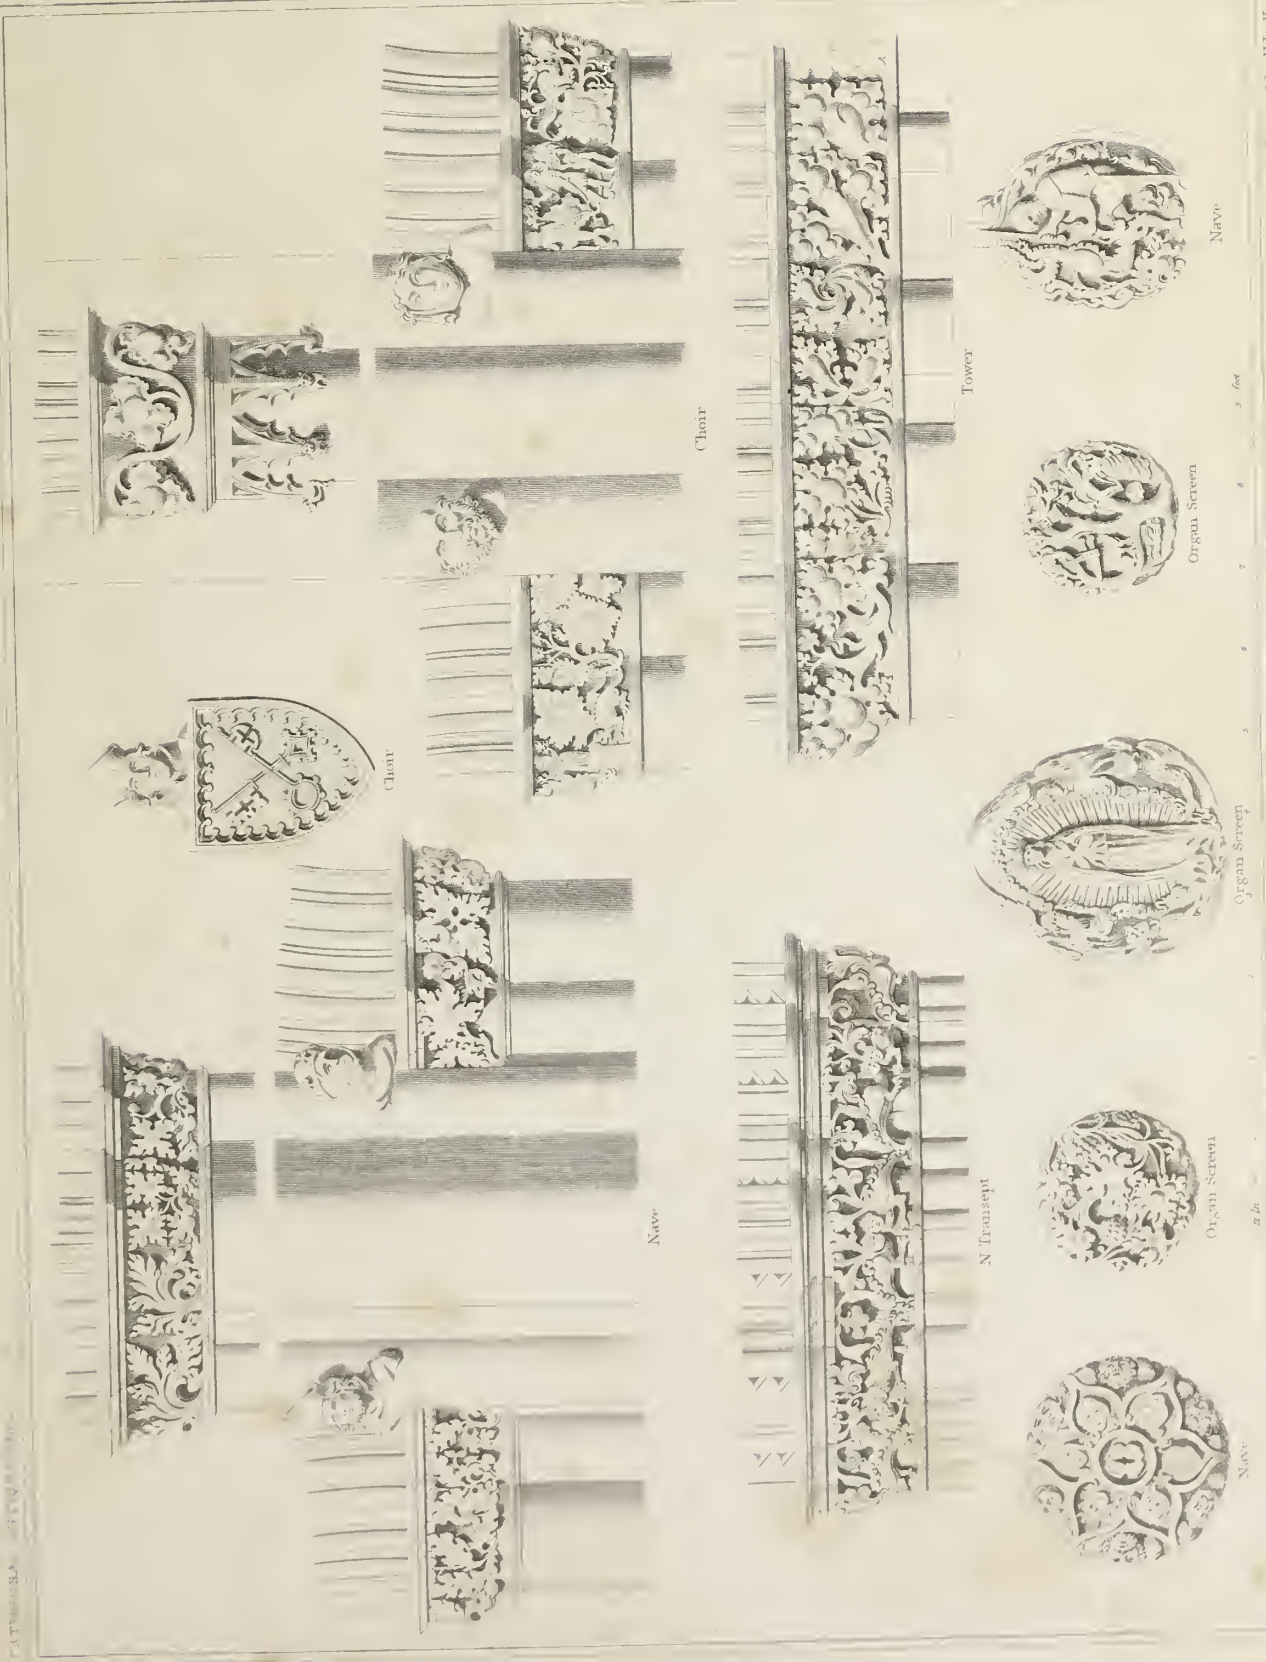 Choir
Nave
Choir
N Transept
Tower
Nave
Organ Screen
Organ Screen
Organ Screen
Nave
12 In
1
2
3
4
5
6
7
8
9 feet